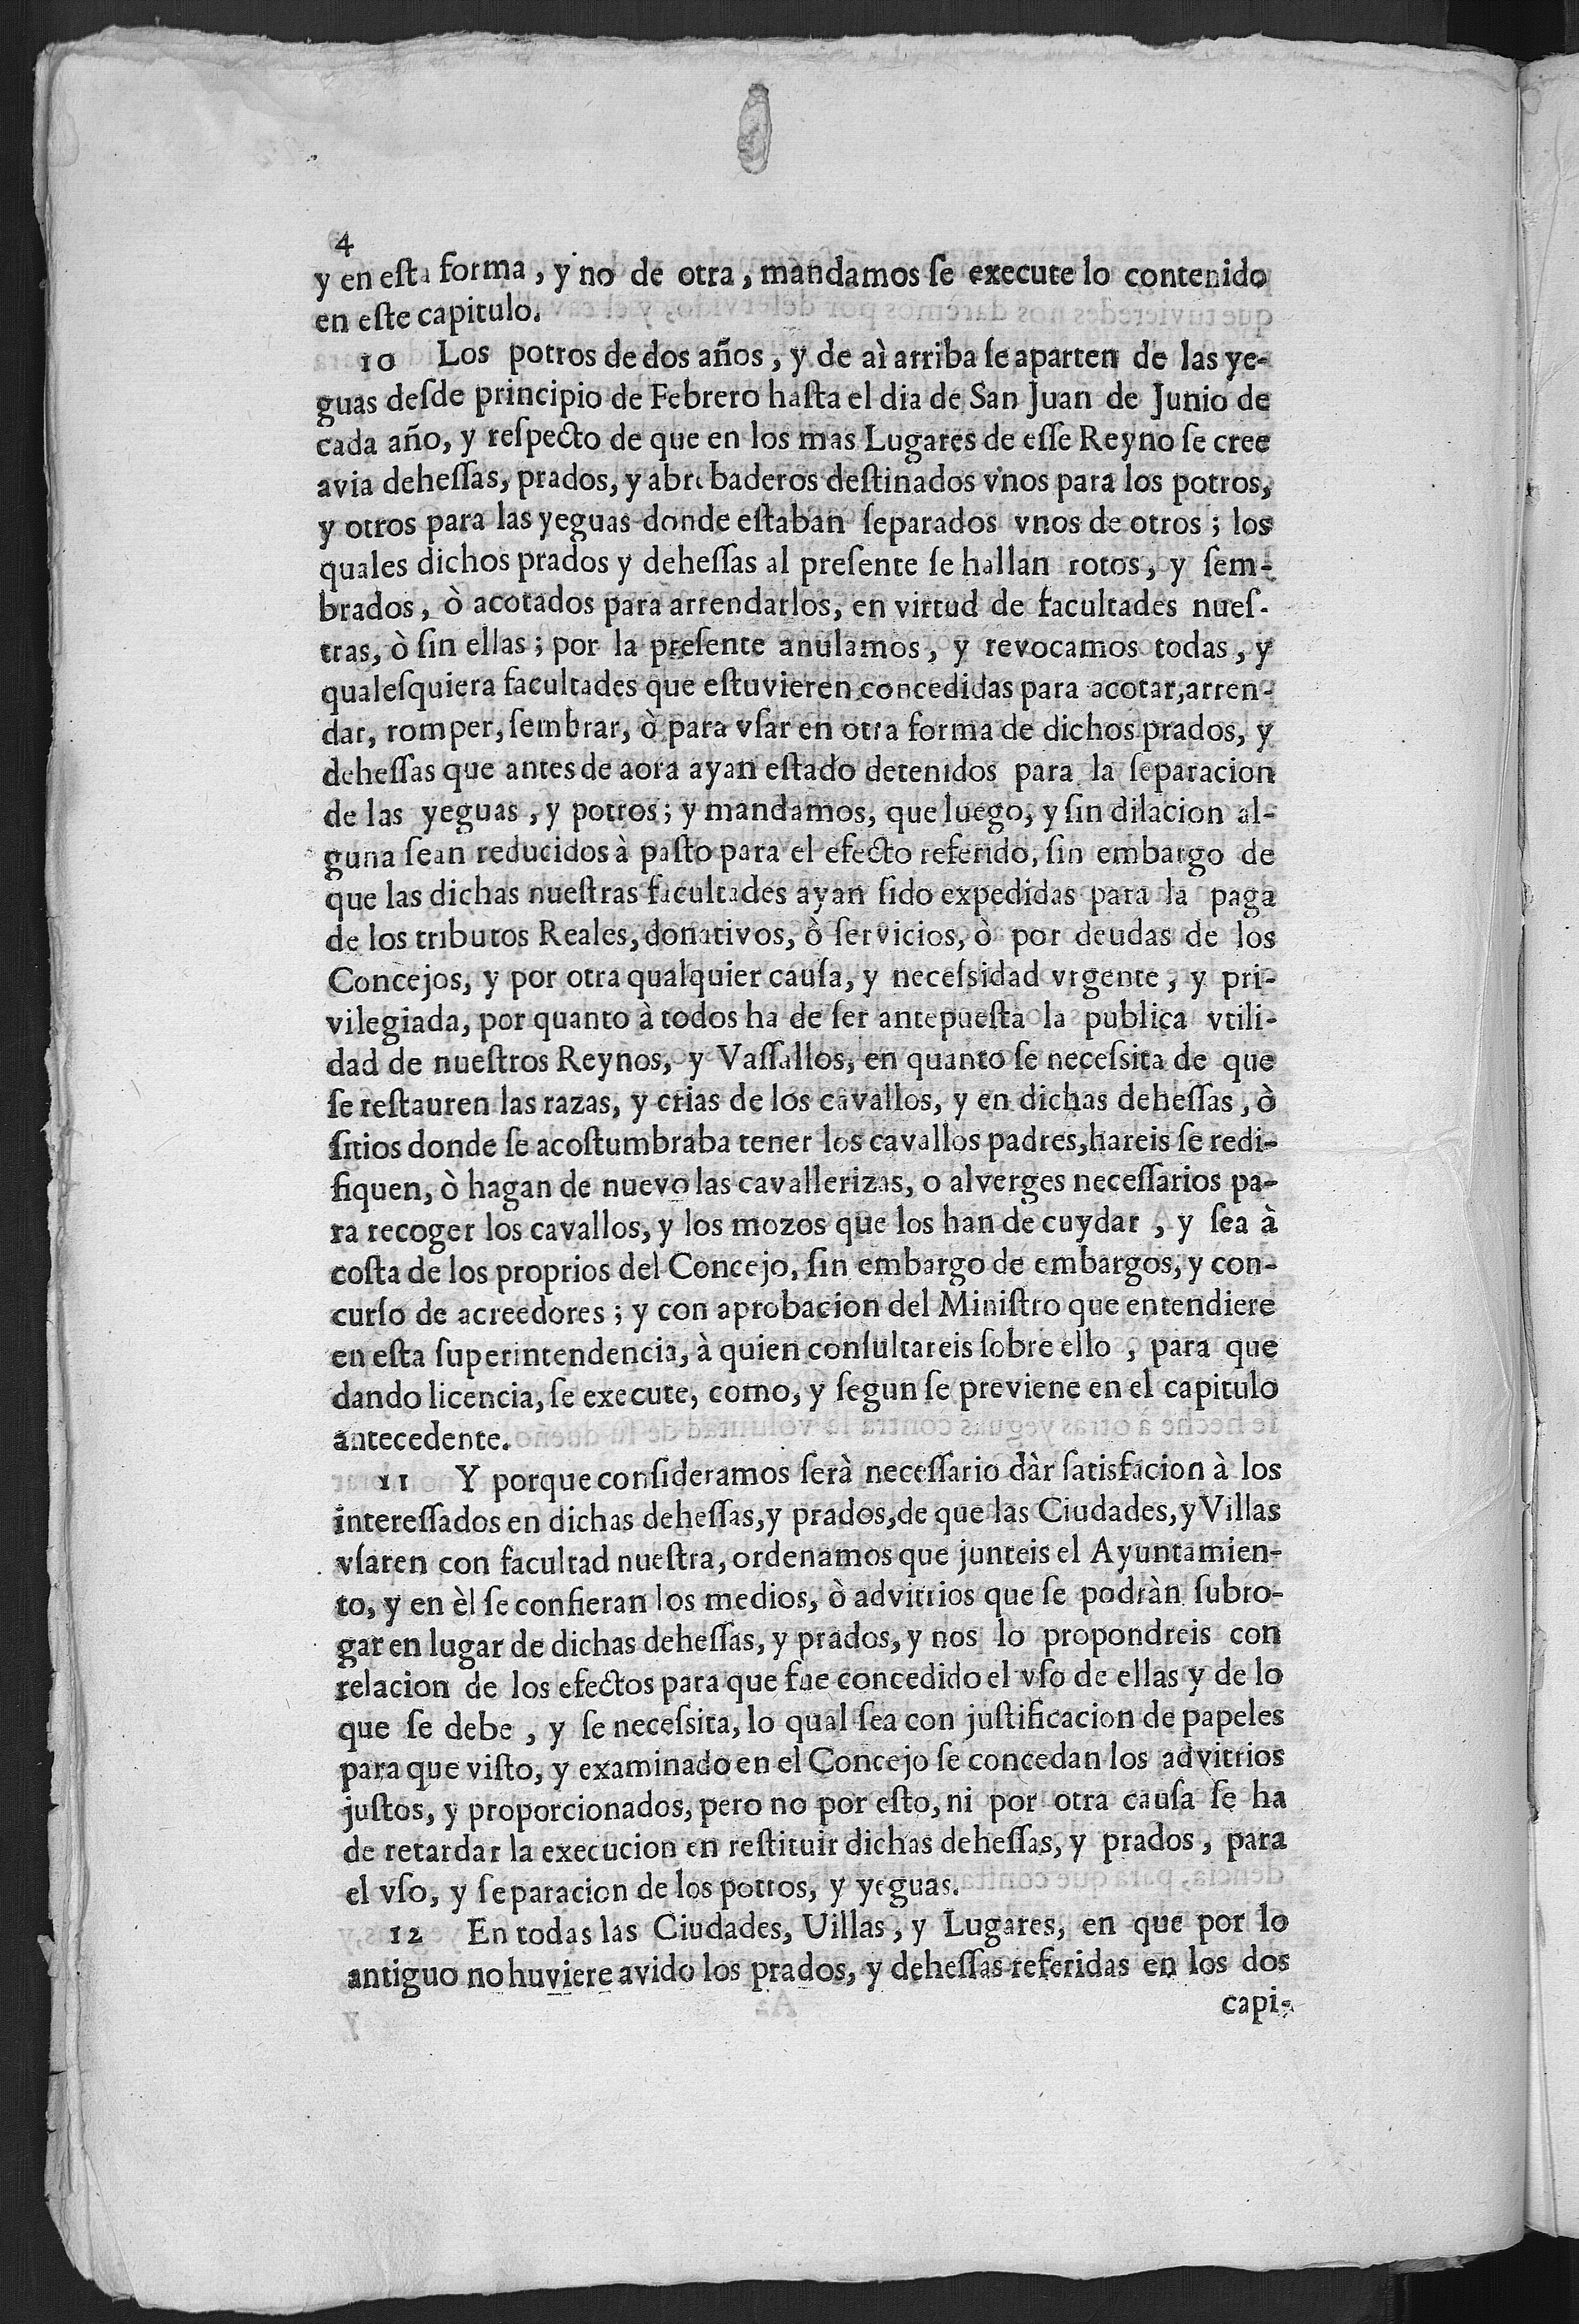 4
y en eſta forma, y no de otra, mandamos ſe execute lo contenido
en eſte capitulo.
10 Los potros de dos años, y de aì arriba ſe aparten de las ye-
guas deſde principio de Febrero haſta el dia de San Juan de Junio de
cada año, y reſpecto de que en los mas Lugares de eſſe Reyno ſe cree
avia deheſſas, prados, y abrebaderos deſtinados vnos para los potros,
y otros para las yeguas donde eſtaban ſeparados vnos de otros; los
quales dichos prados y deheſſas al preſente ſe hallan rotos, y ſem-
brados, ò acotados para arrendarlos, en virtud de facultades nueſ-
tras, ò ſin ellas; por la preſente anulamos, y revocamos todas, y
qualeſquiera facultades que eſtuvieren concedidas para acotar, arren-
dar, romper, ſembrar, ò para vſar en otra forma de dichos prados, y
deheſſas que antes de aora ayan eſtado detenidos para la ſeparacion
de las yeguas, y potros; y mandamos, que luego, y ſin dilacion al-
guna ſean reducidos à paſto para el efecto referido, ſin embargo de
que las dichas nueſtras facultades ayan ſido expedidas para la paga
de los tributos Reales, donativos, ò ſervicios, ò por deudas de los
Concejos, y por otra qualquier cauſa, y neceſsidad vrgente, y pri-
vilegiada, por quanto à todos ha de ſer antepueſta la publica vtili-
dad de nueſtros Reynos, y Vaſſallos, en quanto ſe neceſsita de que
ſe reſtauren las razas, y crias de los cavallos, y en dichas deheſſas, ò
ſitios donde ſe acoſtumbraba tener los cavallos padres, hareis ſe redi-
fiquen, ò hagan de nuevo las cavallerizas, o alverges neceſſarios pa-
ra recoger los cavallos, y los mozos que los han de cuydar, y ſea à
coſta de los proprios del Concejo, ſin embargo de embargos, y con-
curſo de acreedores; y con aprobacion del Miniſtro que entendiere
en eſta ſuperintendencia, à quien conſultareis ſobre ello, para que
dando licencia, ſe execute, como, y ſegun ſe previene en el capitulo
antecedente.
11 Y porque conſideramos ſerà neceſſario dàr ſatisfacion à los
intereſſados en dichas deheſſas, y prados, de que las Ciudades, y Villas
vſaren con facultad nueſtra, ordenamos que junteis el Ayuntamien-
to, y en èl ſe confieran los medios, ò advitrios que ſe podràn ſubro-
gar en lugar de dichas deheſſas, y prados, y nos lo propondreis con
relacion de los efectos para que fue concedido el vſo de ellas y de lo
que ſe debe, y ſe neceſsita, lo qual ſea con juſtificacion de papeles
para que viſto, y examinado en el Concejo ſe concedan los advitrios
juſtos, y proporcionados, pero no por eſto, ni por otra cauſa ſe ha
de retardar la execucion en reſtituir dichas deheſſas, y prados, para
el vſo, y ſeparacion de los potros, y yeguas.
12 En todas las Ciudades, Uillas, y Lugares, en que por lo
antiguo no huviere avido los prados, y deheſſas referidas en los dos
capi-